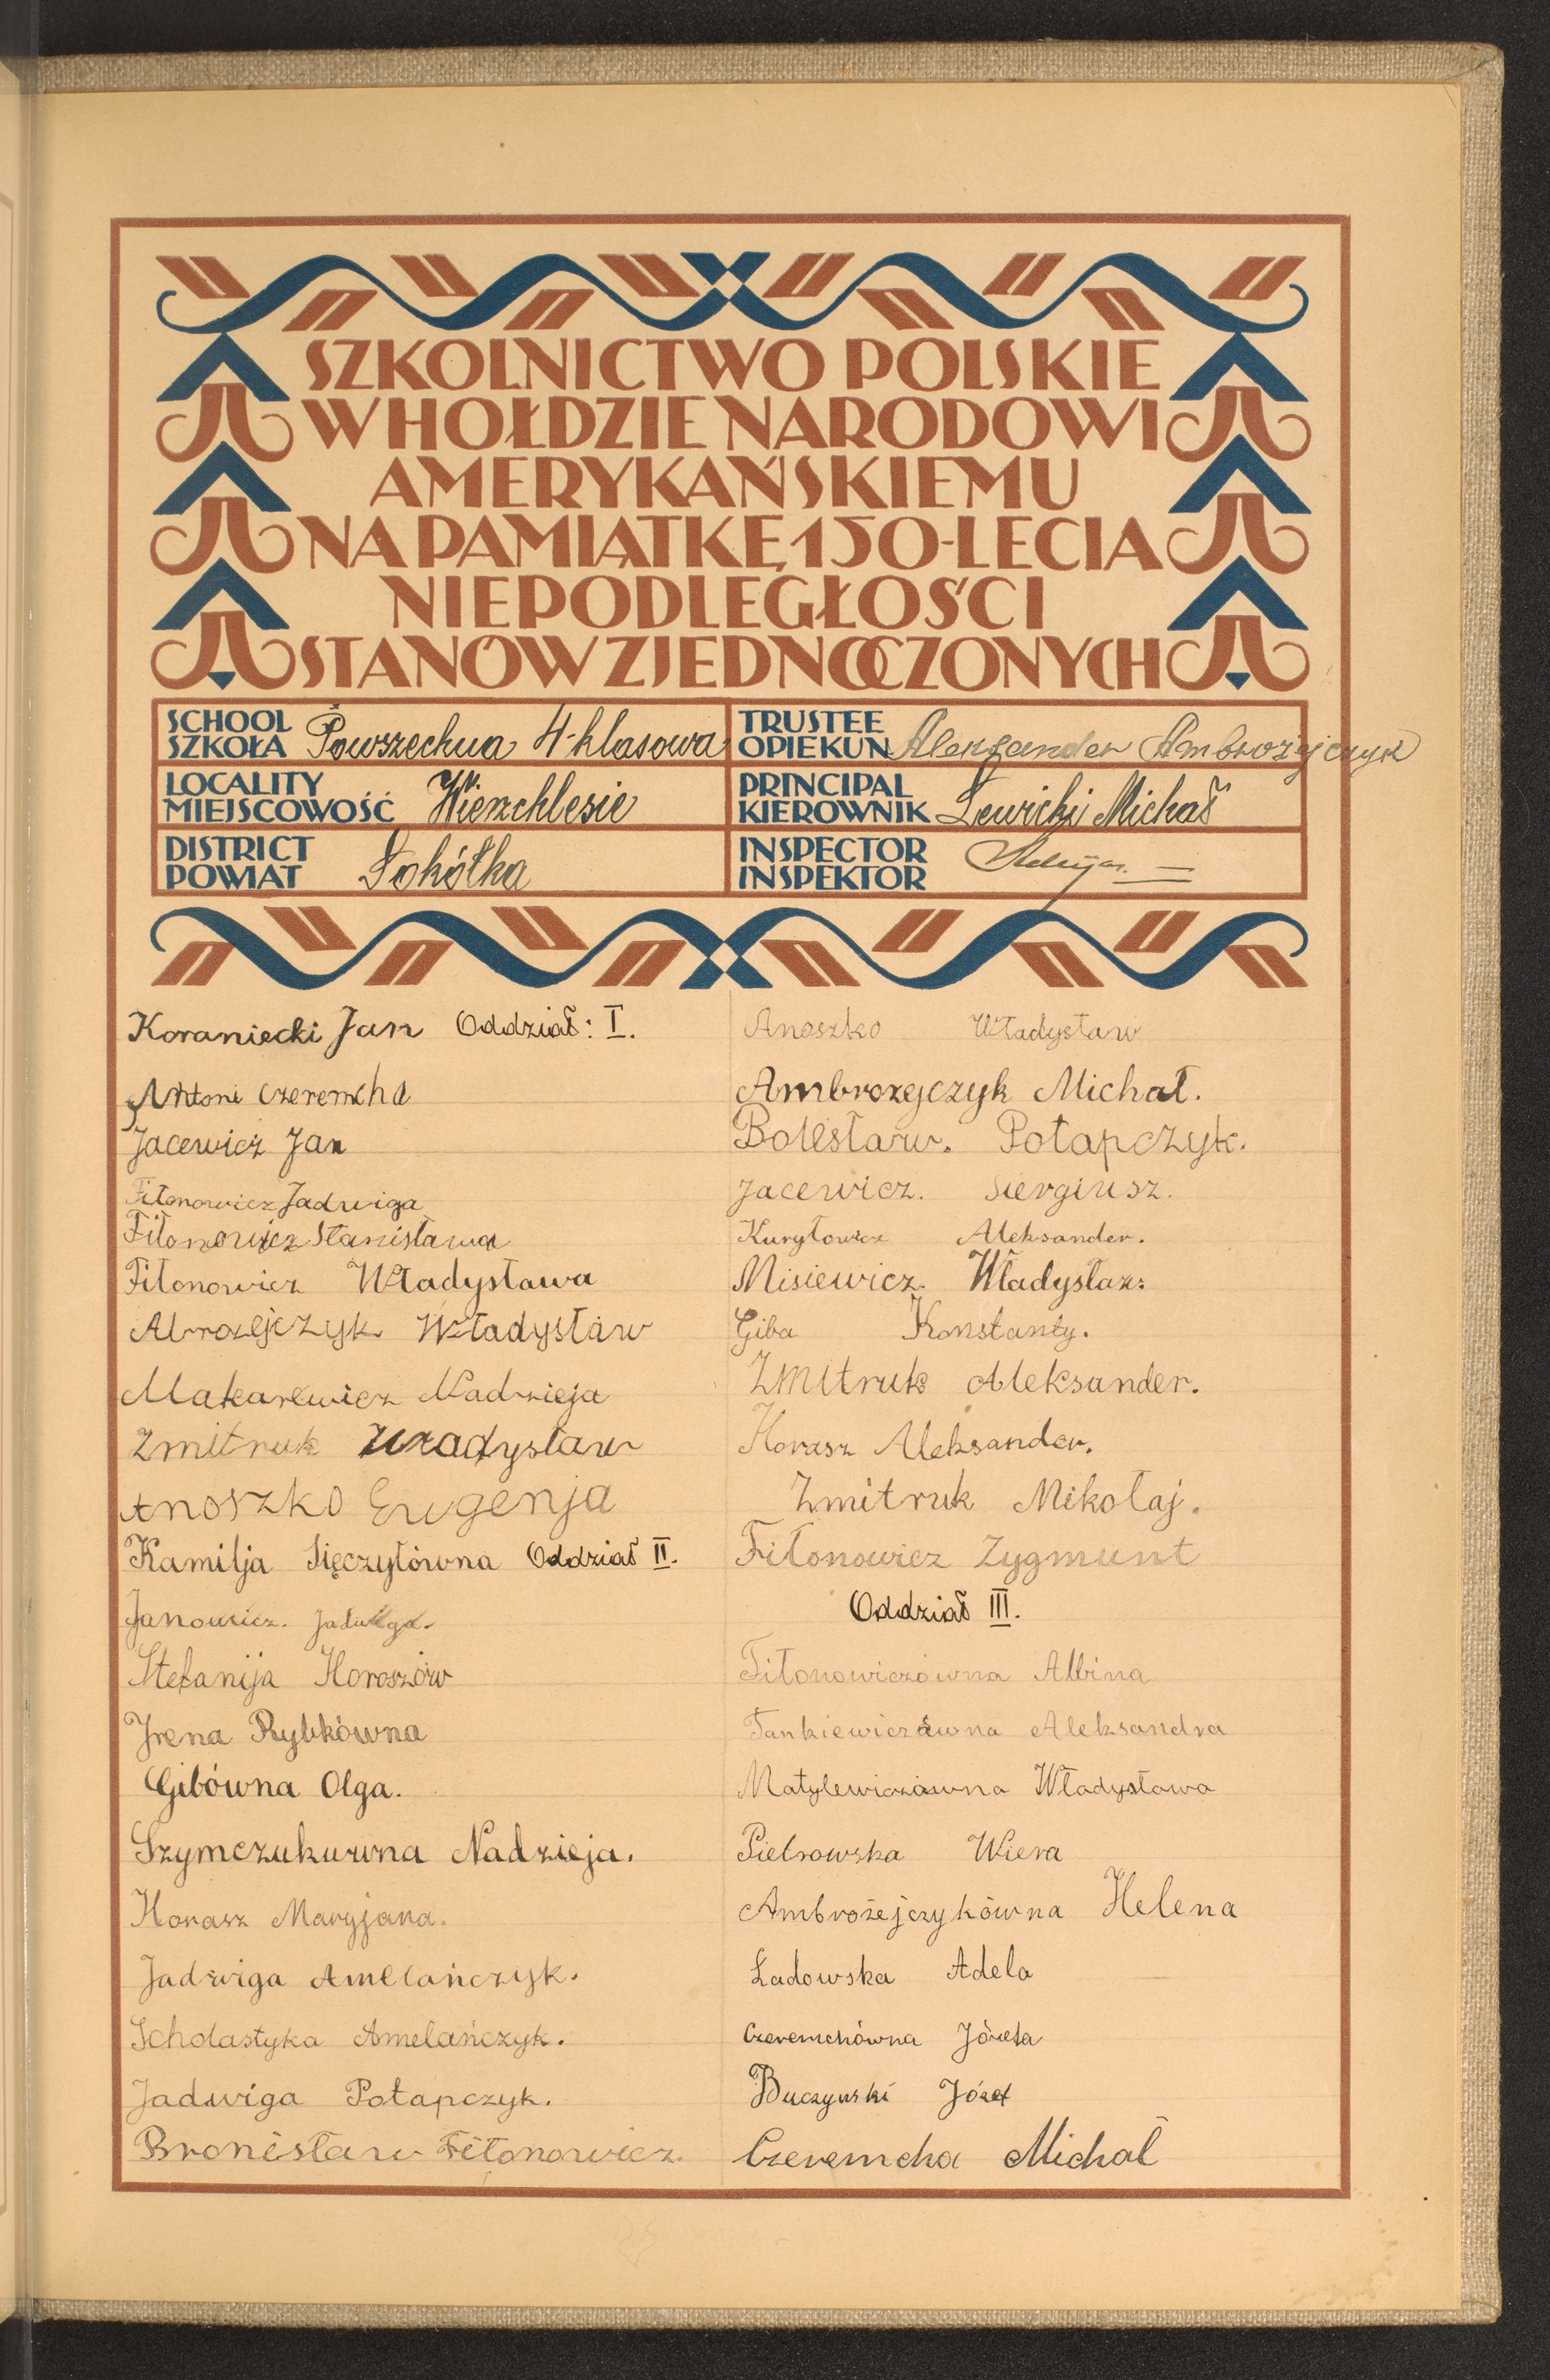 SZKOLNICTWO POLSKIE
W HOŁDZIE NARODOWI
AMERYKAŃSKIEMU
NA PAMIĄTKĘ 150-LECIA
NIEPODLEGŁOŚCI
STANÓW ZJEDNOCZONYCH
SCHOOL
SZKOŁA Powszechna 4-klasowa
TRUSTEE
OPIEKUN Aleksander Ambrożejczyk
LOCALITY
MIEJSCOWOŚĆ Wierzchlesie
PRINCIPAL
KIEROWNIK Lewicki Michał
DISTRICT
POWIAT Sokółka
INSPECTOR
INSPEKTOR
Koraniecki Jan Oddział: I.
Antoni Czeremcha
Jacewicz Jan
Fiłonowicz Jadwiga
Fiłonowicz Stanisława
Fiłonowicz Władysława
Abrozejczyk Władysław
Makarewicz Nadzieja
Zmitruk Władysław
Anoszko Eugenja
Kamilja Sięczyłówna Oddział II.
Janowicz. Jadwiga.
Stefanija Horoszów
Irena Rybkówna
Gibówna Olga.
Szymczukuwna Nadzieja.
Horasz Maryjana.
Jadwiga Amelańczyk.
Scholastyka Amelańczyk.
Jadwiga Potapczyk.
Bronisław Fiłonowicz.
Anoszko Władysław
Ambrozejczyk Michał.
Bolesław. Potapczyk.
Jacewicz. Siergiusz.
Kuryłowicz Aleksander.
Misiewicz. Władysław.
Giba Konstanty.
Zmitruk Aleksander.
Horasz Aleksander.
Zmitruk Mikołaj.
Fiłonowicz Zygmunt
Oddział III.
Fiłonowiczówna Albina
Tankiewiczówna Aleksandra
Matylewiczówna Władysława
Pietrowska Wiera
Ambrożejczykówna Helena
Ładowska Adela
Czeremchówna Józefa
Buczyński Józef
Czeremcha Michał